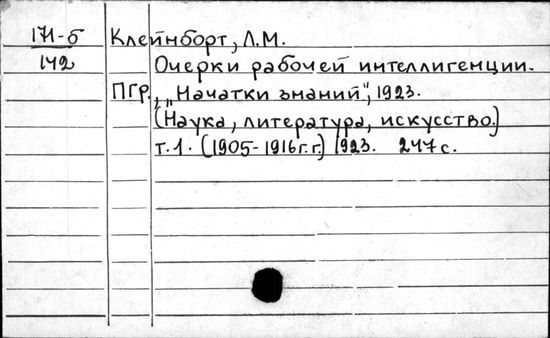 171-б Клейнборт, Л.М.
142 Очерки рабочей интеллигенции.
ПГр., „Начатки знаний", 1923.
(Наука, литература, искусство.)
т.1. (1905-1916г.г.) 1923. 247с.